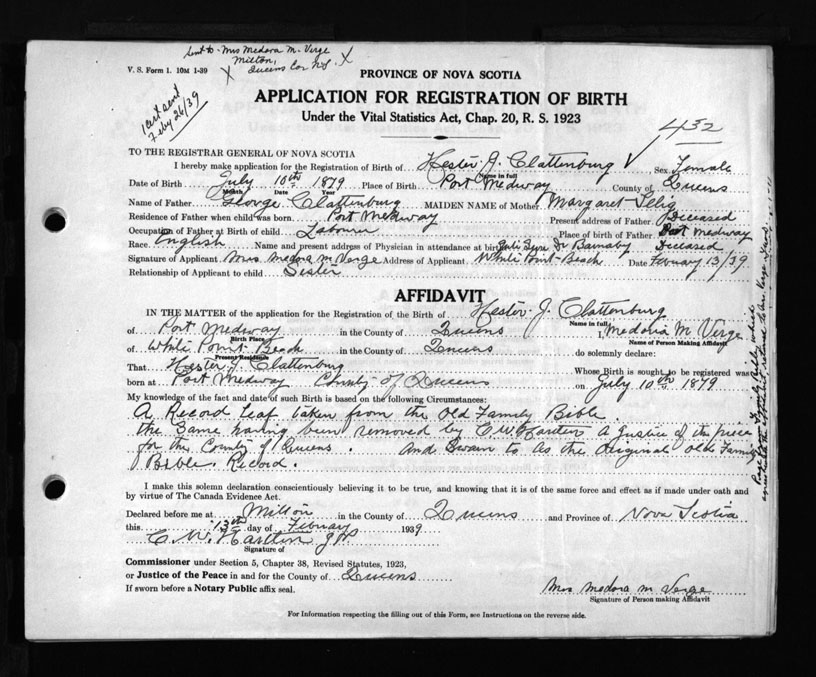 Sent to - Mrs Medora M. Verge
Milton,
Queens Co. N.S. X
X
V. S. Form 1. 10M 1-39
1 cert sent
Feby 26/39
PROVINCE OF NOVA SCOTIA
APPLICATION FOR REGISTRATION OF BIRTH
Under the Vital Statistics Act, Chap. 20, R. S. 1923
432
TO THE REGISTRAR GENERAL OF NOVA SCOTIA
I hereby make application for the Registration of Birth of Hester J. Clattenburg Sex Female
Name in full
Date of Birth July 10th 1879 Place of Birth Port Medway County of Queens
Month Date Year
Name of Father George Clattenburg MAIDEN NAME of Mother Margaret
Residence of Father when child was born Port Medway Present address of Father Deceased
Occupation of Father at Birth of child Labourer Place of birth of Father Port Medway
Race English Name and present address of Physician in attendance at birth Dr Barnaby Deceased
Signature of Applicant Mrs Medora M Verge Address of Applicant White Point Beach Date Febuary 13/39
Relationship of Applicant to child Sister
AFFIDAVIT
IN THE MATTER of the application for the Registration of the Birth of Hester J. Clattenburg
Name in full
of Port Medway in the County of Queens I, Medora M Verge
Birth Place Name of Person Making Affidavit
of White Point Beach in the County of Queens do solemnly declare:
Present Residence
That Hester J. Clattenburg Whose Birth is sought to be registered was
born at Port Medway County of Queens on July 10th 1879
My knowledge of the fact and date of such Birth is based on the following Circumstances:
A Record Leaf taken from the Old Family Bible
the Same having been removed by C. W. a Justice of the piece
for the County of Queens. And Swain to As the Original Olds Family
Bible Record.
I make this solemn declaration conscientiously believing it to be true, and knowing that it is of the same force and effect as if made under oath and
by virtue of The Canada Evidence Act.
Declared before me at Milton in the County of Queens and Province of Nova Scotia
this 13th day of Febuary 1939
C. W. J P
Signature of
Commissioner under Section 5, Chapter 38, Revised Statutes, 1923,
or Justice of the Peace in and for the County of Queens
If sworn before a Notary Public affix seal.
Mrs Medora M. Verge
Signature of Person making Affidavit
For Information respecting the filling out of this Form, see Instructions on the reverse side.